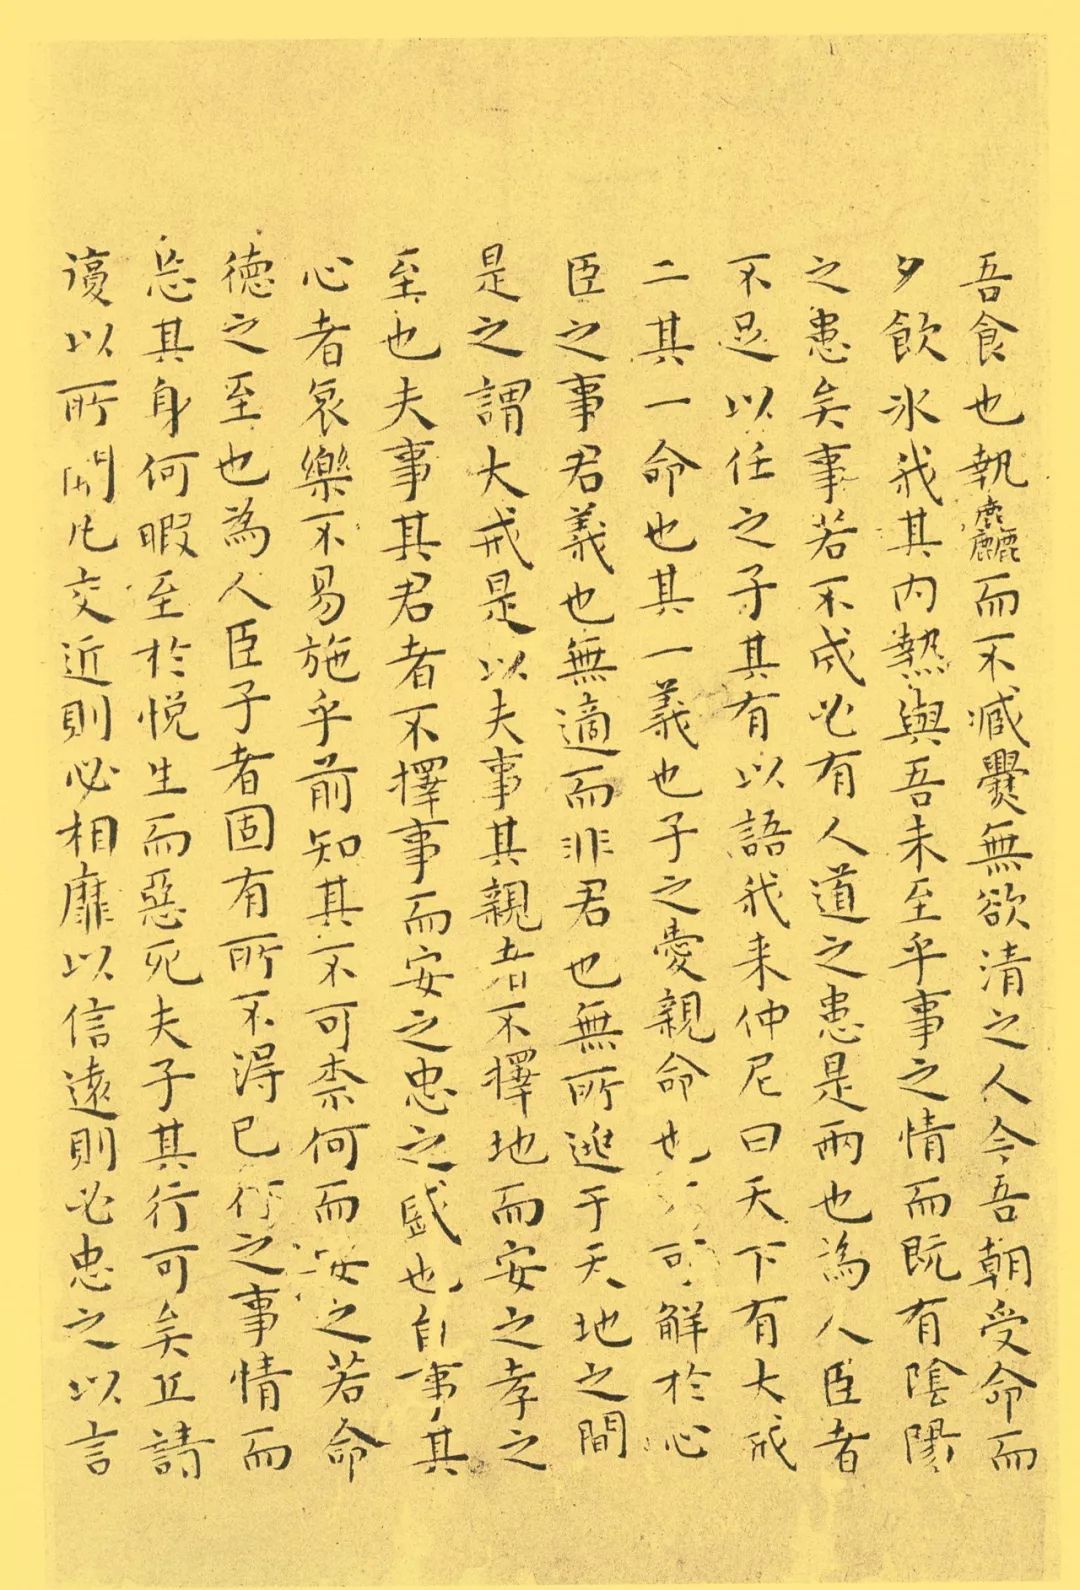 吾食也執麤而不臧爨無欲清之人今吾朝受命而
夕飲冰我其內熱與吾未至乎事之情而既有陰陽
之患矣事若不成必有人道之患是兩也為人臣者
不足以任之子其有以語我来仲尼曰天下有大戒
二其一命也其一義也子之愛親命也可解於心
臣之事君義也無適而非君也無所逃于天地之間
是之謂大戒是以夫事其親者不擇地而安之孝之
至也夫事其君者不擇事而安之忠之盛也自事其
心者哀樂不易施乎前知其不可柰何而安之若命
德之至也為人臣子者固有所不得已行之事情而
忘其身何暇至於悅生而惡死夫子其行可矣丘請
以所聞凡交近則必相靡以信遠則必忠之以言